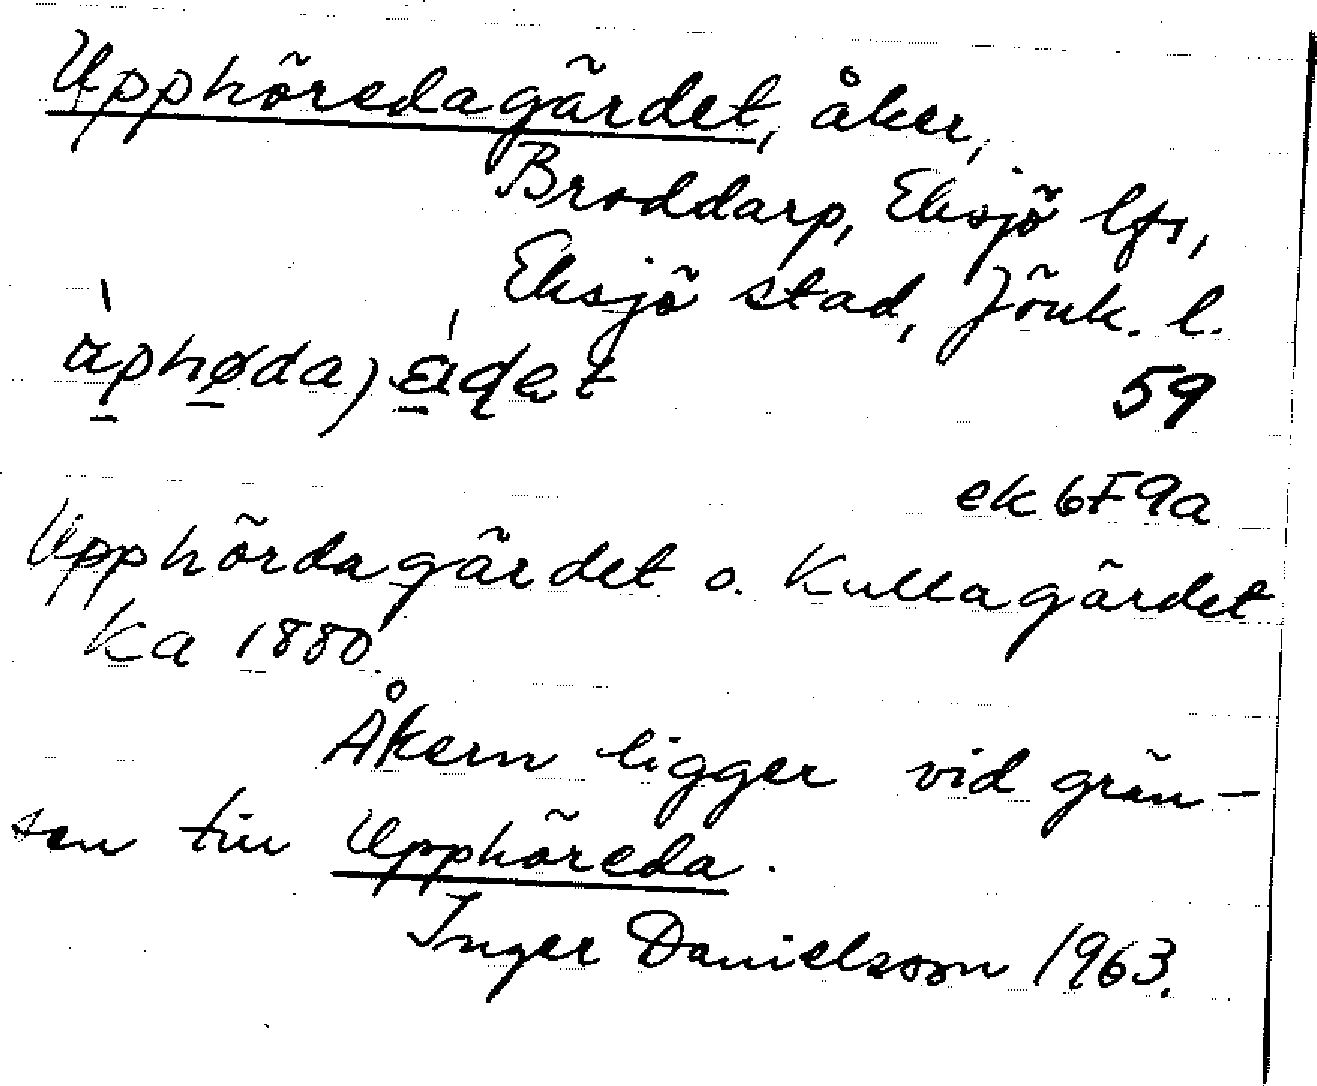 Upphöredagärdet, åker,
Broddarp, Eksjö lfs,
Eksjö stad, Jönk. l.
59
ek 6F9a
Upphördagärdet o. Kullagärdet
Ka 1880.
Åkern ligger vid grän-
sen till Upphöreda.
Inger Danielsson 1963.